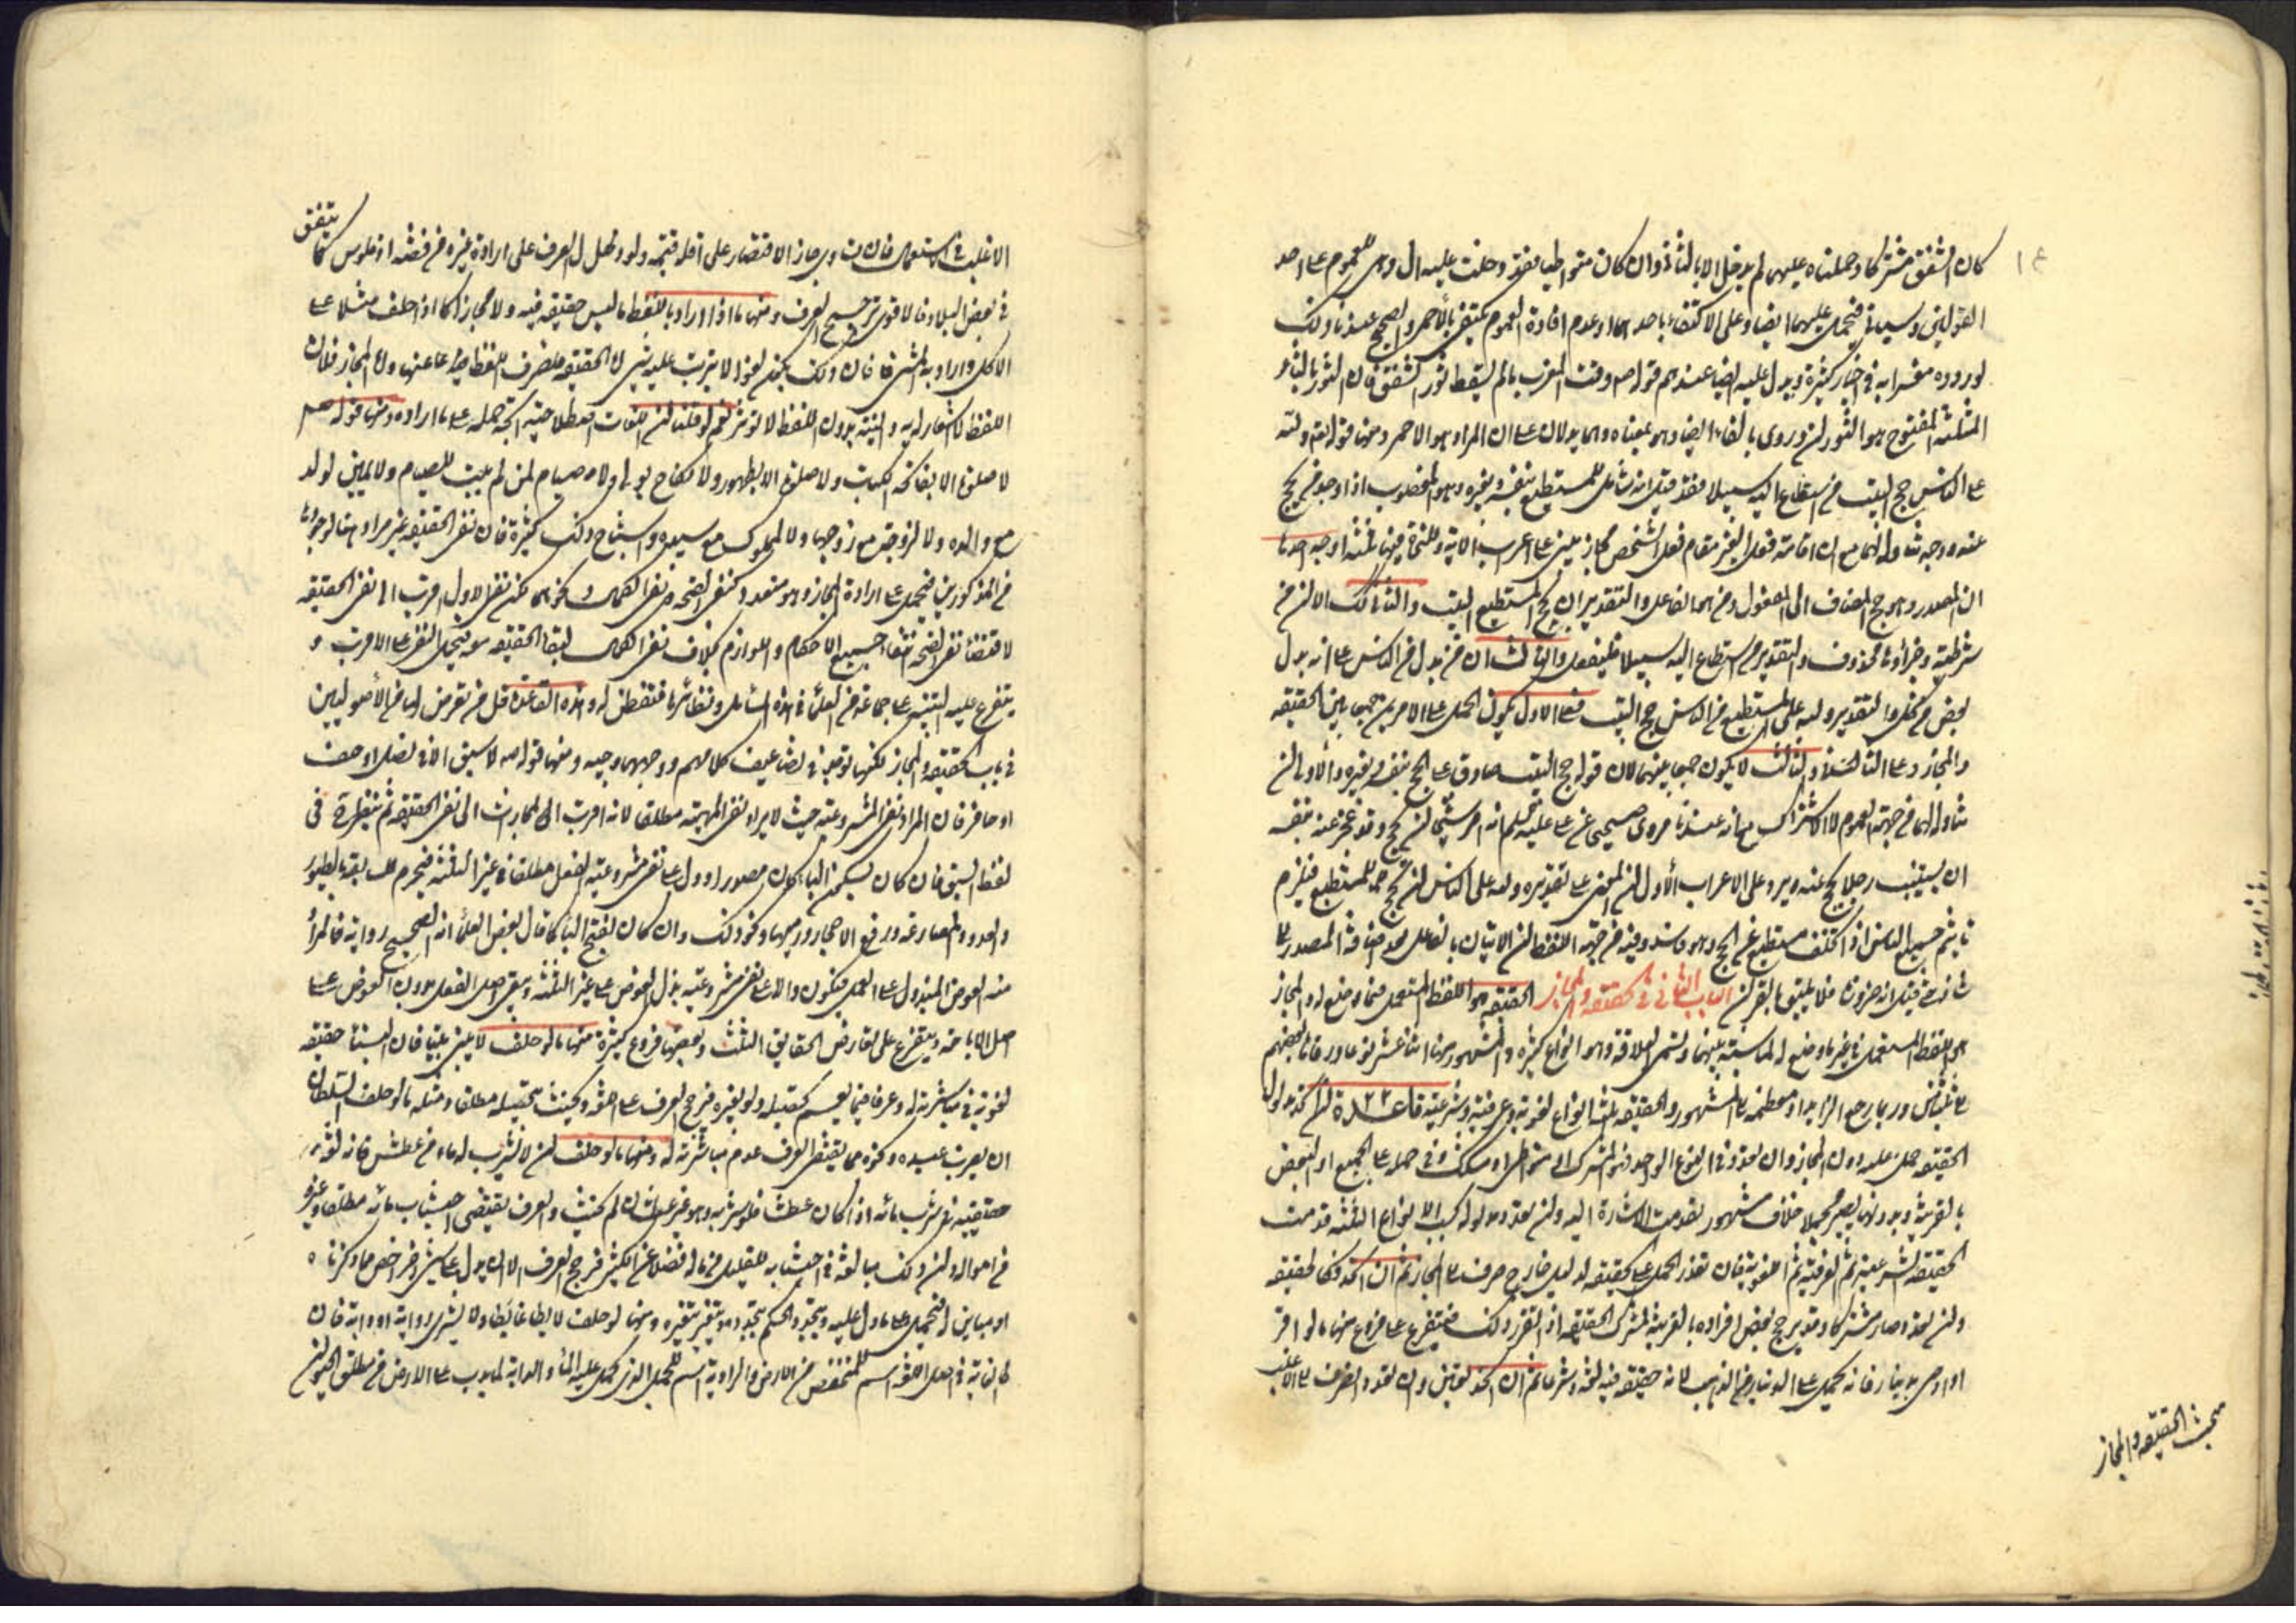 ١٤
كان الشفق مشتركا وحملناه عليهما لم يدخل الا بالثاني وان كان متواطيا فقد دخلت عليه ال وهي للعموم على احد
القولين وسياتي فيحمل عليهما ايضا وعلى الاكتفاء باحدهما وعدم افادة العموم يكتفي بالاحمر والصحيح عندنا ذلك
لوروده مفسرا به في اخبار كثيرة ويدل عليه ايضا عندهم قوله ص وقت المغرب ما لم يسقط ثور الشفق فان الثور بالثاء
المثلثة المفتوح هو الثوران وروى بالفاء ايضا وهو بمعناه وهما يدلان على ان المراد هو الاحمر ومنها قوله تع ولله
على الناس حج البيت من استطاع اليه سبيلا فقد قيل انه شامل للمستطيع بنفسه وبغيره وهو المعضوب اذا وجد من يحج
عنه ووجه تناوله لهما مع ان اقامة فعل الغير مقام فعل الشخص مجاز يبنى على اعراب الاية وللنحاة فيها ثلثة اوجه احدها
ان المصدر وهو حج المضاف الى المفعول ومن هي الفاعل والتقدير ان يحج المستطيع البيت والثاني كذلك الا ان من
شرطية وجزاؤها محذوف والتقدير من استطاع اليه سبيلا فليفعل والثالث ان من بدل من الناس على انه بدل
بعض من كل والتقدير ولله على المستطيع من الناس حج البيت فعلى الاول يكون الحمل على الامرين جمعا بين الحقيقة
والمجاز وعلى الثاني والثالث لا يكون جمعا بينهما لان قوله حج البيت صادق على الحج بنفسه وبغيره والاولى ان
تناوله لهما من جهة العموم لا الاشتراك مع انه عندنا مروى صحيحا عن على عليه السلم انه امر شيخا لم يحج وقد عجز عنه بنفسه
ان يستنيب رجلا يحج عنه ويرد على الاعراب الاول ان المعنى على تقديره ولله على الناس ان يحج المستطيع فيلزم
تاثيم جميع الناس اذا تخلف مستطيع عن الحج وهو فاسد وفيه من جهة اللفظ ان الاتيان بالفاعل بعد اضافة المصدر
شاذ حتى قيل انه ضرورة فلا يليق بالقران الباب الثاني في الحقيقة والمجاز الحقيقة هو اللفظ المستعمل فيما وضع له والمجاز
هو اللفظ المستعمل في غير ما وضع له لمناسبة بينهما وتسمى العلاقة وهو انواع كثيرة والمشهور منها اثنا عشر نوعا ورقاها بعضهم
الى ثلثين وربما رجع الزايد او معظمه الى المشهور والحقيقة ثلثة انواع لغوية وعرفية وشرعية قاعدة ٢٢ ان اتحد مدلول
الحقيقة حمل عليه دون المجاز وان تعدد في النوع الواحد فهو المشترك او متواطى او مشكك وفي حمله على الجميع او البعض
بالقرينة وبدونها يصير مجملا خلاف مشهور تقدمت الاشارة اليه وان تعدد مدلوله بحسب الانواع الثلثة قدمت
الحقيقة الشرعية ثم العرفية ثم اللغوية فان تعذر الحمل على الحقيقة لدليل خارج صرف الى المجاز ثم ان اتحد فكالحقيقة
وان تعدد صار مشتركا وقد يرجح بعض افراده بالقرينة كمشترك الحقيقة اذا تقرر ذلك فيتفرع على فروع منها ما لو اقر
او اوصى بدينار فانه يحمل على الدينار من الذهب لانه حقيقة فيه لغة وشرعا ثم ان اتحد تعين وان تعدد انصرف الى الاغلب
مبحث الحقيقة والمجاز
الاغلب في الاستعمال فان تساوى جاز الاقتصار على اقله قيمة ولو دل العرف على ارادة غيره من فضة او فلوس كما يتفق
في بعض البلاد فالاقوى ترجيح العرف ومنها ما اذا اراد باللفظ ما ليس حقيقة فيه ولا مجازا كما اذا حلف مثلا على
الاكل واراد به المشى فان ذلك يكون لغوا لا يترتب عليه شئ لا الحقيقة لصرف اللفظ عنها ولا المجاز فان
اللفظ لا اشعار له به والنية بدون اللفظ لا تؤثر نعم لو قلنا ان اللغات اصطلاحية اتجه حمله على ما اراده ومنها قوله ص
لا صلوة الا بفاتحة الكتاب ولا صلوة الا بطهور ولا نكاح بولى ولا صيام لمن لم يبيت الصيام ولا يمين لولد
مع والده ولا لزوجة مع زوجها ولا لمملوك مع سيده واشباه ذلك كثيرة فان نفى الحقيقة غير مراد هنا لوجودها
من المذكورين فيحمل على ارادة المجاز وهو متعدد كنفى الصحة ونفى الكمال ونحوهما لكن نفى الاول اقرب الى نفى الحقيقة
لاقتضاء نفى الصحة انتفاء جميع الاحكام واللوازم بخلاف نفى الكمال لبقاء الحقيقة معه فيحمل النفى على الاقرب و
يتفرع عليه التنبيه على جماعة من العلماء في هذه المسائل ونظائرها فتفطن له وهذه القاعدة قل من تعرض لها من الاصوليين
في باب الحقيقة والمجاز لكنها توجد في تضاعيف كلامهم ووجهها وجيه ومنها قوله ص لا سبق الا في نصل او خف
او حافر فان المراد نفى المشروعية حيث لا يراد نفى المهية مطلقا لانه اقرب المجازات الى نفى الحقيقة ثم ينظر في
لفظ السبق فان كان بسكون الباء كان مصدرا ودل على نفى مشروعية الفعل مطلقا في غير الثلثة فيحرم المسابقة بالطيور
والعدو والمصارعة ورفع الاحجار ورميها ونحو ذلك وان كان بفتح الباء كما قال بعض العلماء انه الصحيح رواية فالمراد
منه العوض المبذول على العمل فيكون دالا على نفى مشروعية بذل العوض على غير الثلثة ويبقى اصل الفعل بدون العوض على
اصل الاباحة ويتفرع على تعارض الحقايق الثلث وبعضها فروع كثيرة منها ما لو حلف لا يبنى بيتا فان البناء حقيقة
لغوية في مباشرته له وعرفا فيما يعم تحصيله ولو بغيره فيرجح العرف على اللغة ويحنث بتحصيله مطلقا ومثله ما لو حلف السلطان
ان يضرب عبيده ونحوه مما يقتضى العرف عدم مباشرته له ومنها ما لو حلف ان لا يشرب له ماء من عطش فانه لغة
حقيقته في شرب مائه اذا كان عطشانا فلو شربه وهو غير عطشان لم يحنث والعرف يقتضى اجتناب مائه مطلقا وغيره
من امواله وان ذلك مبالغة في اجتنابه للقليل من ماله فضلا عن الكثير فيرجح العرف الا ان يدل على شئ اخر اخص مما ذكرناه
او مباين له فيحمل على ما دل عليه ويتجدد الحكم بتجدده ويتغير بتغيره ومنها لو حلف لا يطا غائطا ولا يشترى راوية او دابة فان
الغائط في اصل اللغة اسم للمنخفض من الارض والراوية اسم للجمل الذى يحمل عليه الماء والدابة لما يدب على الارض من مطلق الحيوان